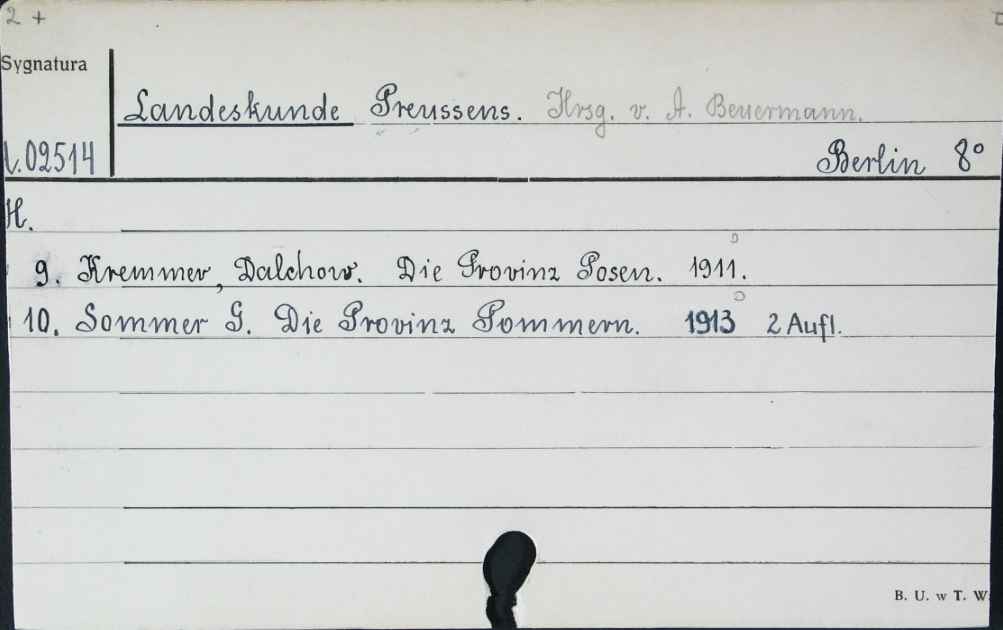 2 +
Sygnatura
Landeskunde Preussens. Hrsg. v. A. Beuermann.
02514
Berlin 8°
H.
9. Kremmer, Dalchow. Die Provinz Posen. 1911.
10. Sommer G. Die Provinz Pommern. 1913 2 Aufl.
B. U. w T. W.